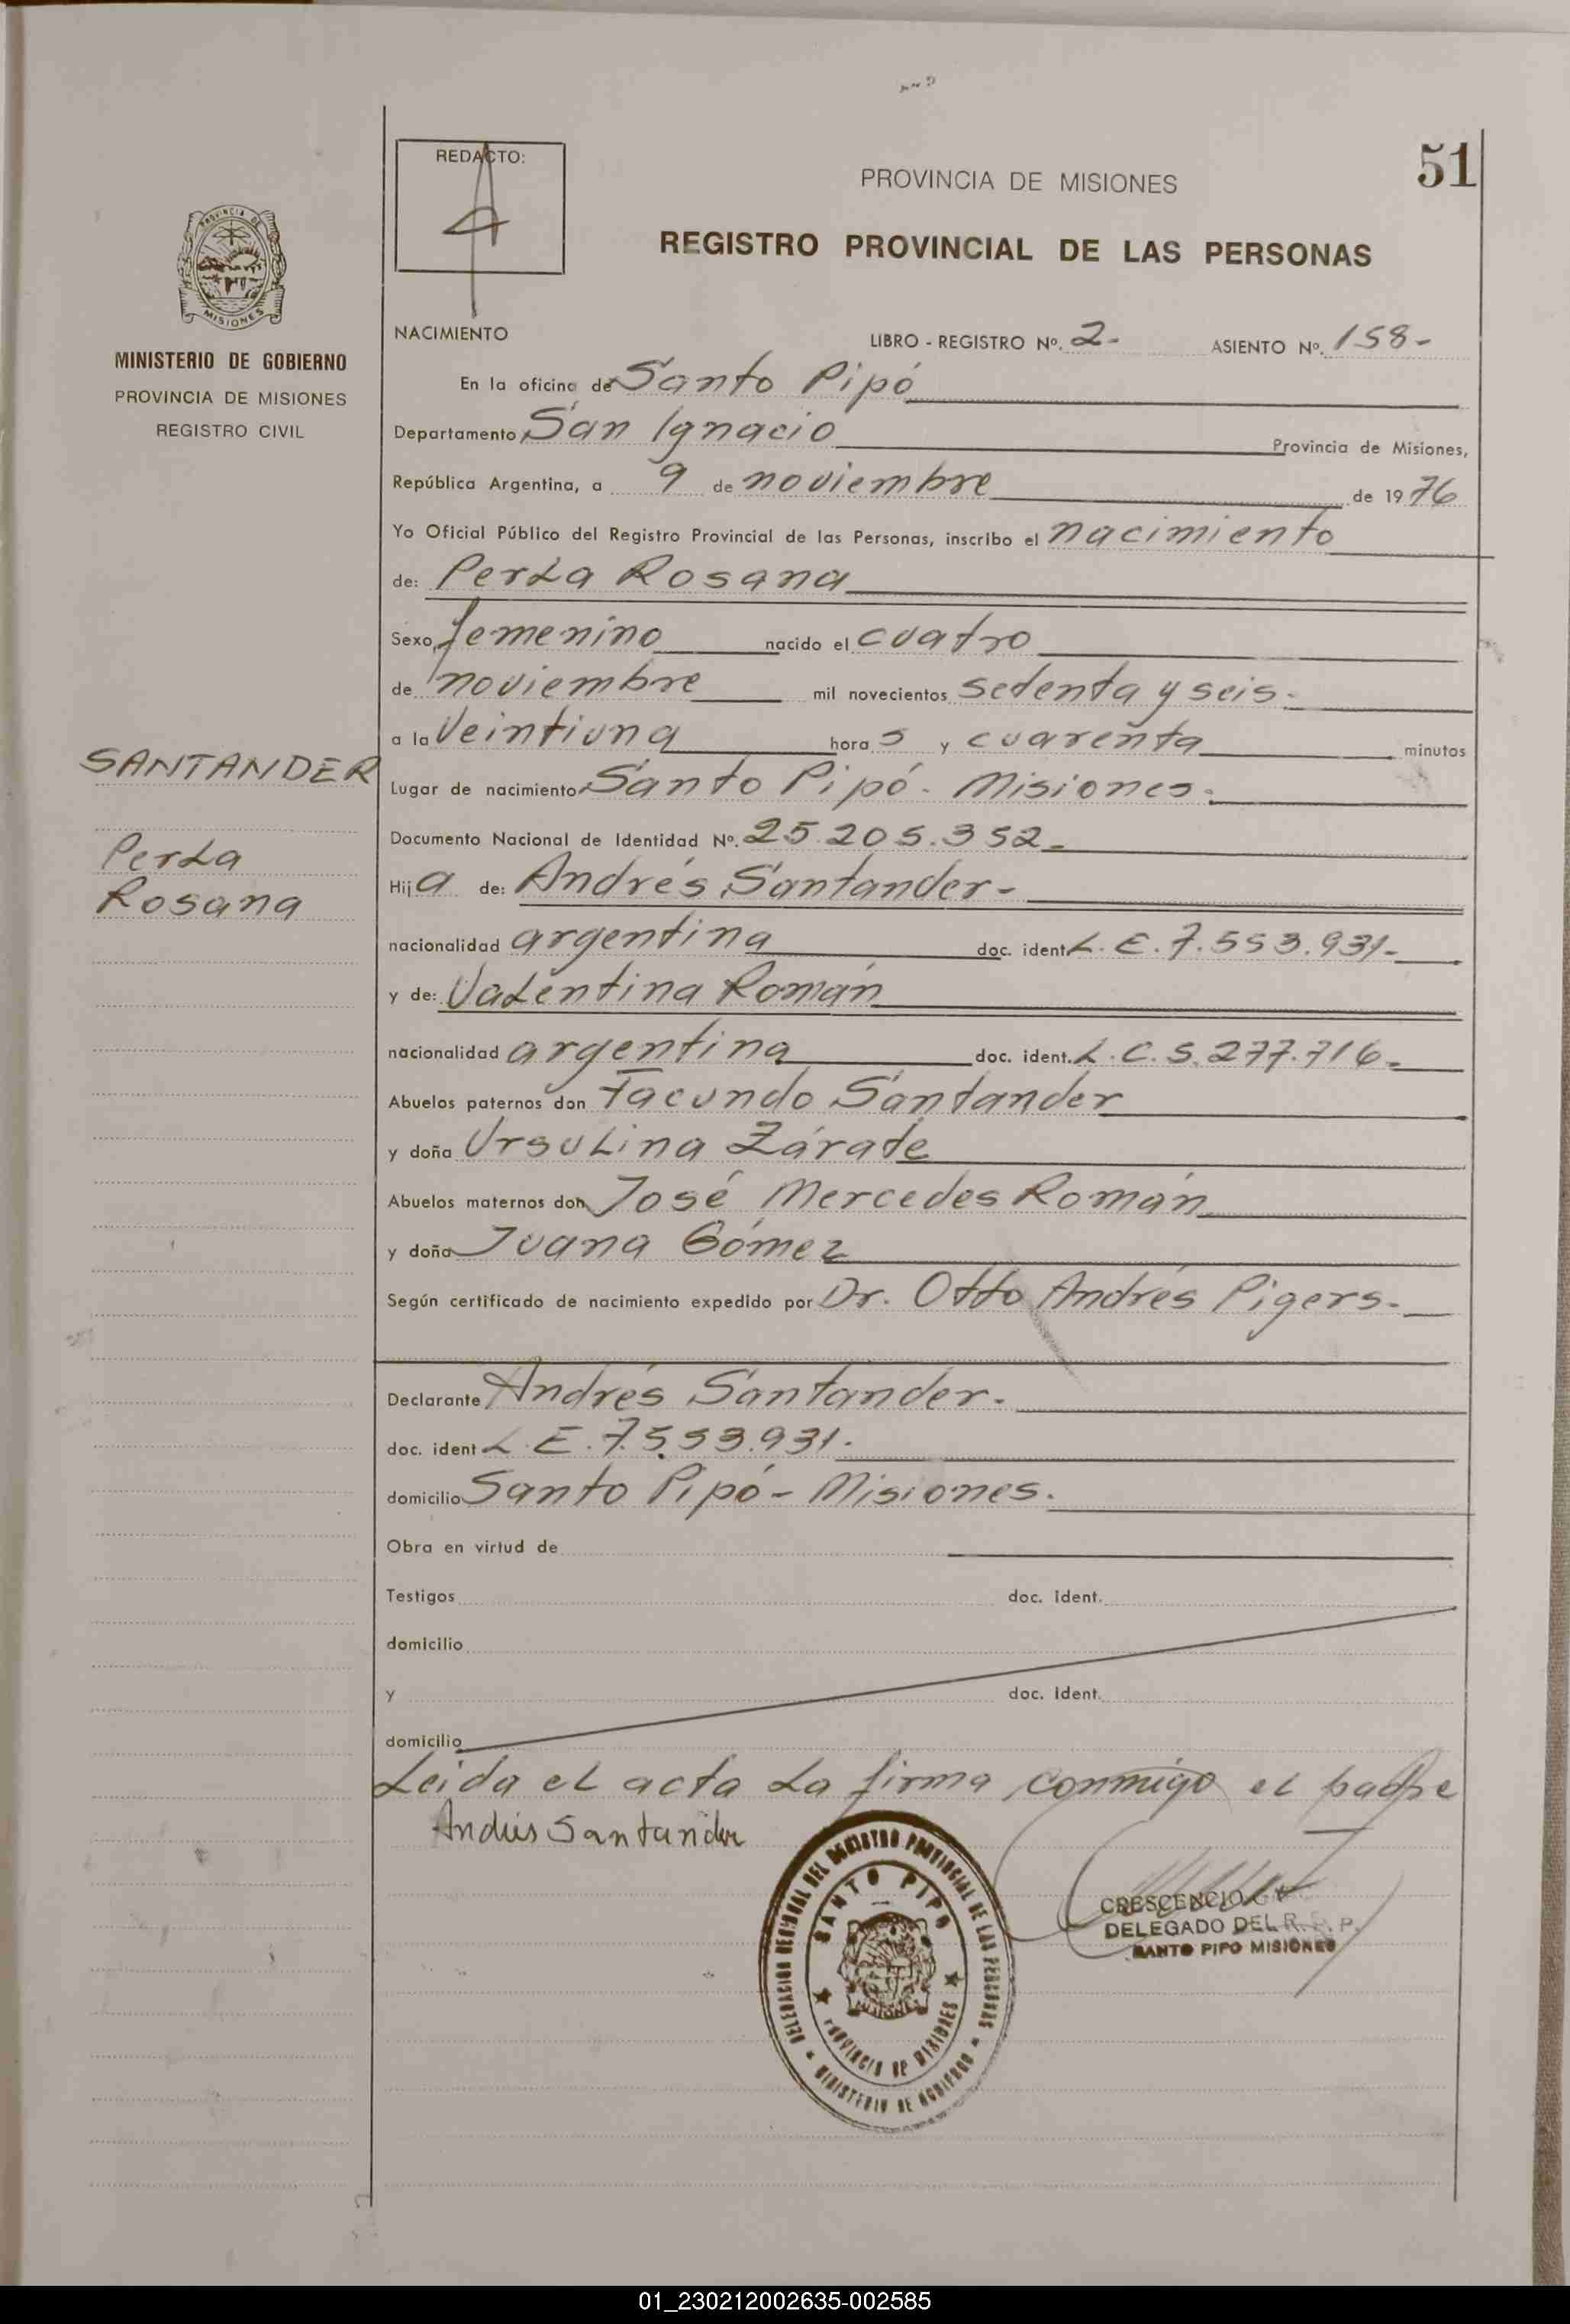 51
REDACTO:
PROVINCIA DE MISIONES
REGISTRO PROVINCIAL DE LAS PERSONAS
PROVINCIA DE
MISIONES
MINISTERIO DE GOBIERNO
PROVINCIA DE MISIONES
REGISTRO CIVIL
NACIMIENTO LIBRO - REGISTRO Nº. 2- ASIENTO Nº. 158-
En la oficina de Santo Pipó
Departamento San Ignacio Provincia de Misiones,
República Argentina, a 9 de noviembre de 1976
Yo Oficial Público del Registro Provincial de las Personas, inscribo el nacimiento
de: Perla Rosana
Sexo femenino nacido el cuatro
de noviembre mil novecientos setenta y seis.
a la veintiuna hora s y cuarenta minutos
SANTANDER
Perla
Rosana
Lugar de nacimiento Santo Pipó - Misiones.
Documento Nacional de Identidad Nº. 25.205.352-
Hija de: Andrés Santander-
nacionalidad argentina doc. ident. L.E. 7.553.931-
y de: Valentina Román
nacionalidad argentina doc. ident. L.C. 5.277.716-
Abuelos paternos don Facundo Santander
y doña Ursulina Zárate
Abuelos maternos don José Mercedes Román
y doña Juana Gómez
Según certificado de nacimiento expedido por Dr. Otto Andrés Pigers.
Declarante Andrés Santander.
doc. ident L.E. 7.553.931.
domicilio Santo Pipó - Misiones.
Obra en virtud de
Testigos doc. ident.
domicilio
y doc. ident.
domicilio
Leída el acta la firma conmigo el padre
Andrés Santander
DELEGACION REGIONAL DEL REGISTRO PROVINCIAL DE LAS PERSONAS
SANTO PIPO
PROVINCIA DE MISIONES
MINISTERIO DE GOBIERNO
CRESCENCIO
DELEGADO DEL R. P.
SANTO PIPO MISIONES
01_230212002635-002585